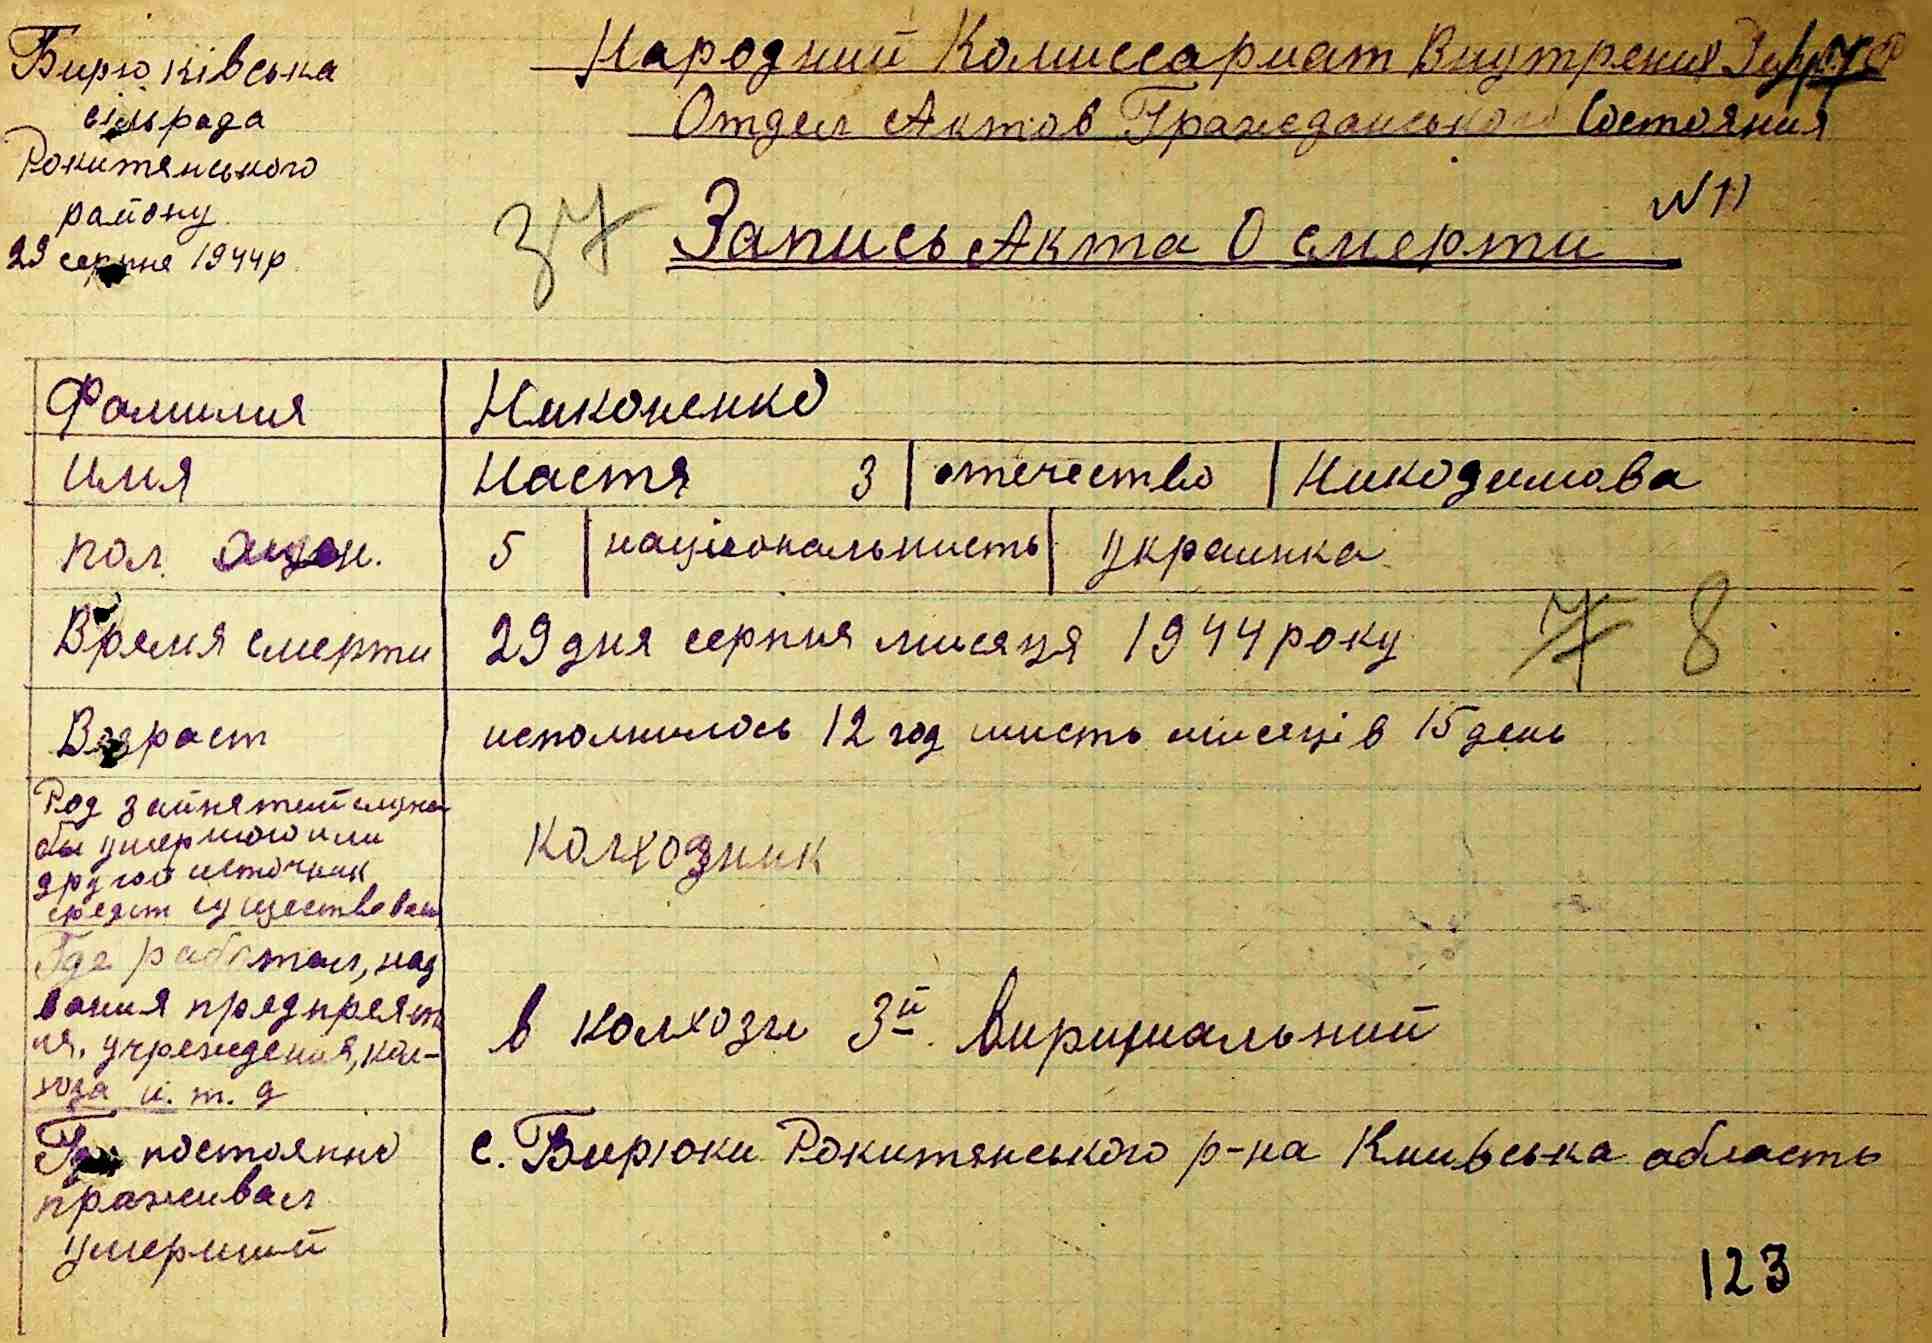 Бирюківська
сільрада
Рокитянського
району
29 серпня 1944р.
Народний Комиссариат Внутрения
Отдел Актов Гражеданського Состояния
37
Запись Акта О смерти
N 11
Фамилия
Никоненко
имя
Настя 3 отечество Никодимова
пол. 5 національность украинка
Время смерти
29 дня серпня мисяця 1944 року 7 8
Возраст
исполнилось 12 год шисть місяців 15 день
Род зайнятий служ
бы умершого или
другой источник
средст существован
колхозник
Где работал, наз
вания предпреят
ия, учреждения, кол-
хоза и. т. д
в колхози 3й виришальний
Где постоянно
проживал
умерший
с. Бирюки Рокитянського р-на Киивська область
123